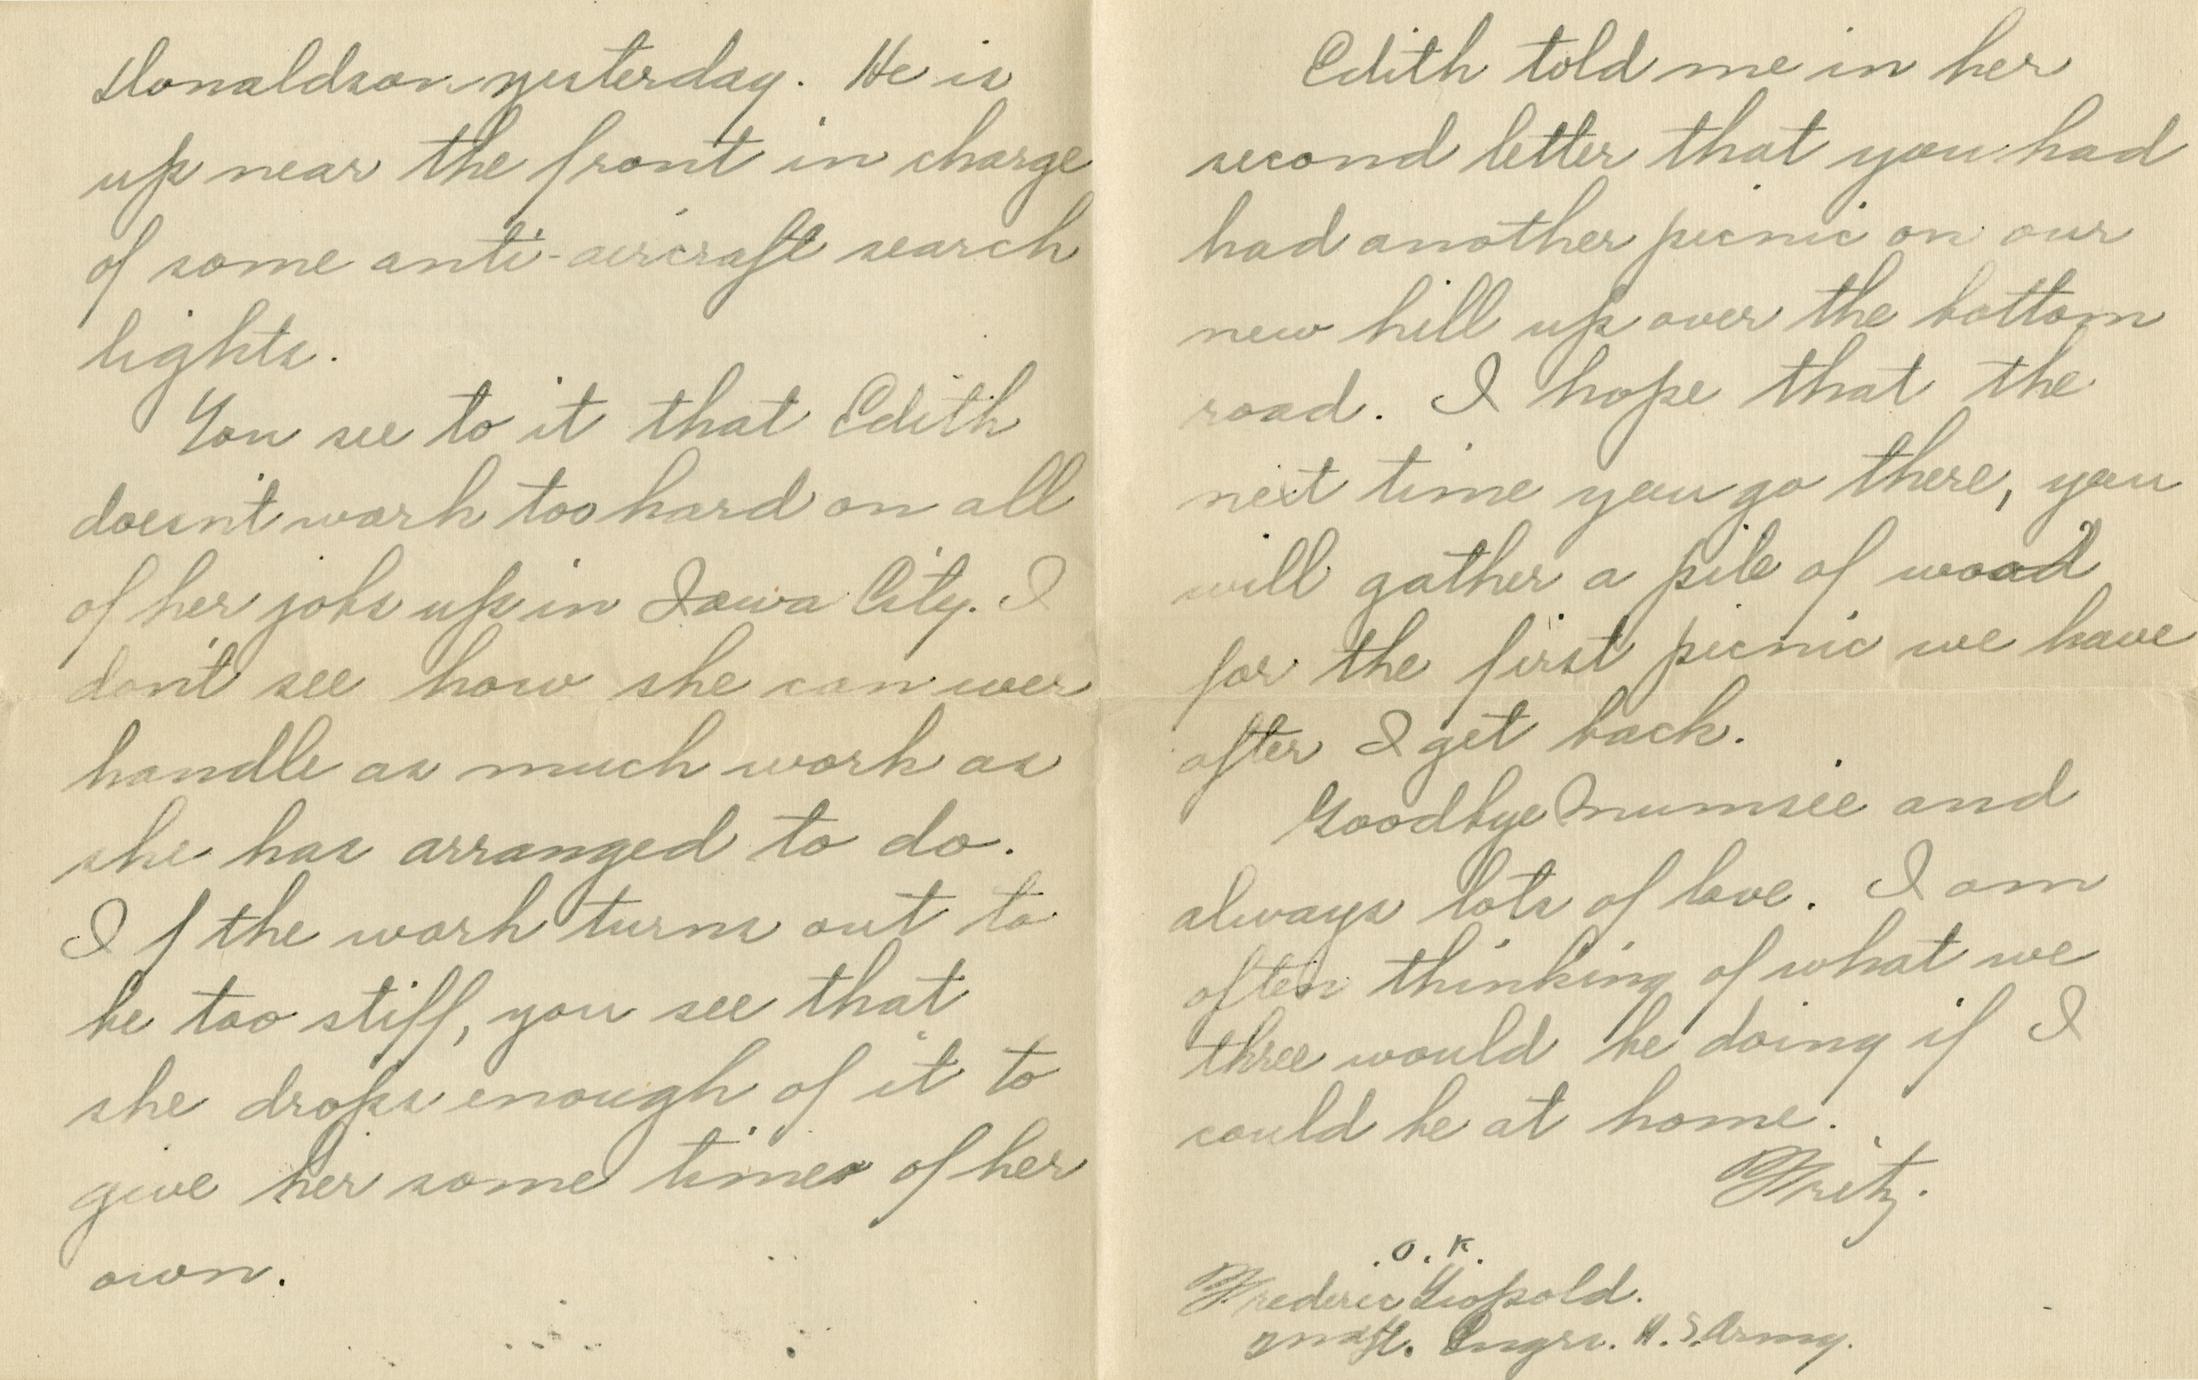 Donaldson yesterday. He is
up near the front in charge
of some anti-aircraft search
lights.
You see to it that Edith
doesn't work too hard on all
of her jobs up in Iowa City. I
don't see how she can ever
handle as much work as
she has arranged to do.
If the work turns out to
be too stiff, you see that
she drops enough of it to
give her some time of her
own.
Edith told me in her
second letter that you had
had another picnic on our
new hill up over the bottom
road. I hope that the
next time you go there, you
will gather a pile of wood
for the first picnic we have
after I get back.
Goodbye Mumsie and
always lots of love. I am
often thinking of what we
three would be doing if I
could be at home.
Fritz.
O.K.
Frederic Leopold.
Engrs. U.S. Army.